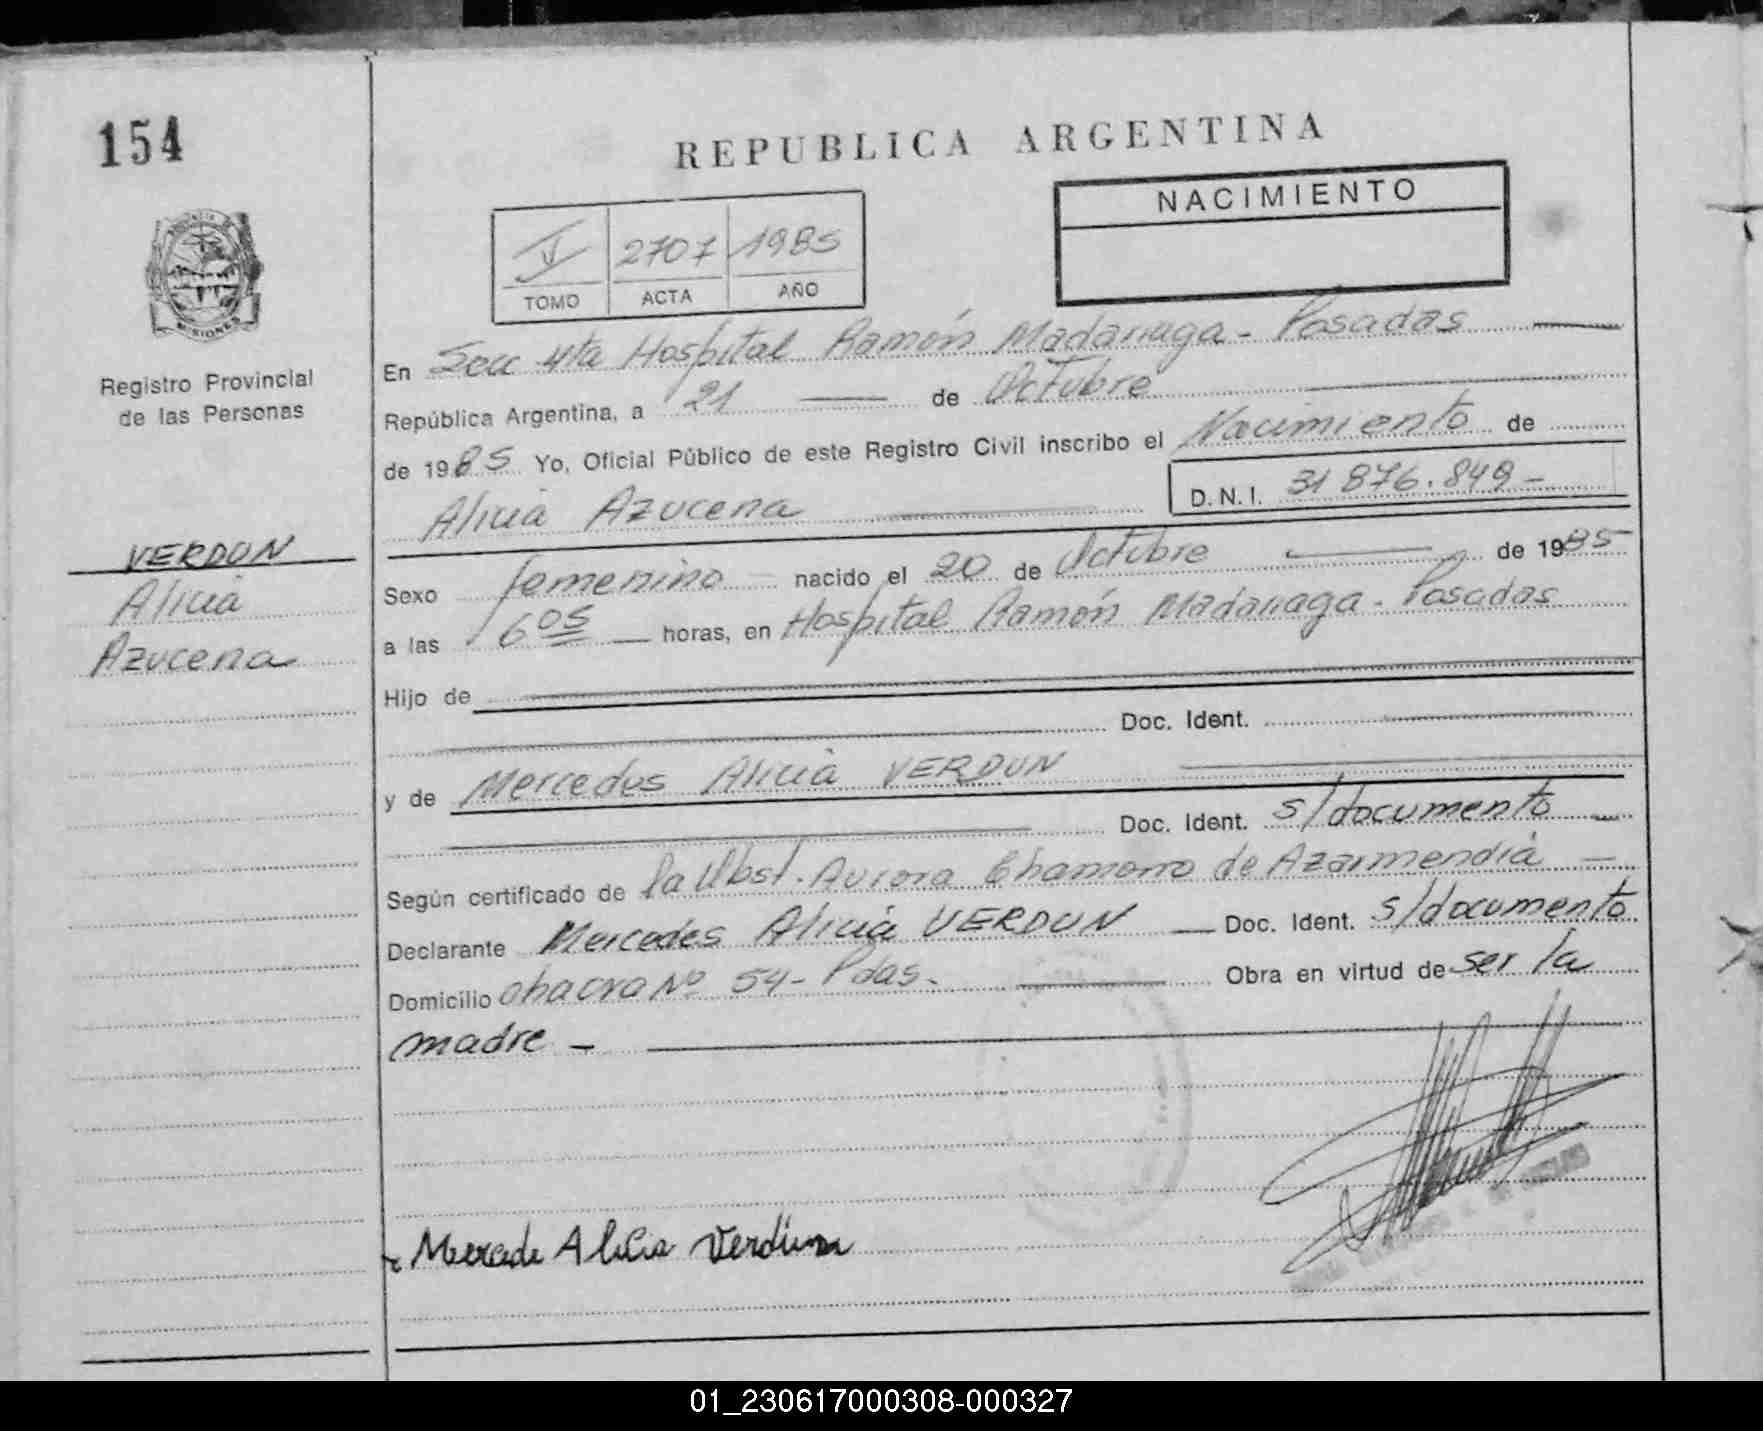 154
REPUBLICA ARGENTINA
NACIMIENTO
V 2707 1985
TOMO ACTA AÑO
MISIONES
Registro Provincial
de las Personas
VERDUN
Alicia
Azucena
En Secc 4ta Hospital Ramón Madariaga - Posadas
República Argentina, a 21 de Octubre
de 1985 Yo, Oficial Público de este Registro Civil inscribo el Nacimiento de
Alicia Azucena D.N.I. 31 876.849-
Sexo femenino nacido el 20 de Octubre de 1985
a las 6 05 horas, en Hospital Ramón Madariaga - Posadas
Hijo de
Doc. Ident.
y de Mercedes Alicia VERDUN
Doc. Ident. s/documento
Según certificado de la Obst. Aurora Chamorro de Azarmendia
Declarante Mercedes Alicia VERDUN Doc. Ident. s/documento
Domicilio chacra Nº 54- Pdas. Obra en virtud de ser la
madre -
Mercede Alicia Verdum
01_230617000308-000327